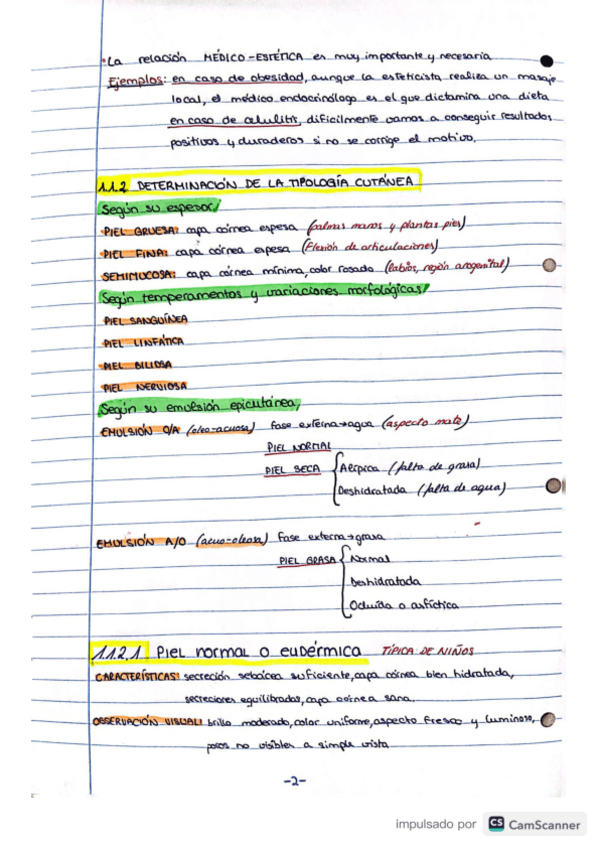 • La relación MÉDICO-ESTÉTICA es muy importante y necesaria
Ejemplos: en caso de obesidad, aunque la esteticista realiza un masaje
local, el médico endocrinólogo es el que dictamina una dieta
en caso de celulitis, dificilmente vamos a conseguir resultados
positivos y duraderos si no se corrige el motivo.
1.1.2 DETERMINACIÓN DE LA TIPOLOGÍA CUTÁNEA
Según su espesor/
·PIEL GRUESA: capa córnea espesa (palmas manos y plantas pies)
·PIEL FINA: capa córnea espesa (Flexión de articulaciones)
SEMIMUCOSA: capa córnea mínima, color rosado (labios, región anogenital)
Según temperamentos y variaciones morfológicas/
·PIEL SANGUÍNEA
·PIEL LINFÁTICA
·PIEL BILIOSA
·PIEL NERVIOSA
Según su emulsión epicutánea/
EMULSIÓN O/A (oleo-acuosa) Fase externa→agua (aspecto mate)
PIEL NORMAL
PIEL SECA { Alípica (falta de grasa)
Deshidratada (falta de agua)
EMULSIÓN A/O (acuo-oleosa) Fase externa→grasa
PIEL GRASA { Normal
Deshidratada
Ocluida o asfíctica
1.1.2.1 Piel normal o eudérmica TÍPICA DE NIÑOS
CARACTERÍSTICAS: secreción sebácea suficiente, capa córnea bien hidratada,
secreciones equilibradas, capa córnea sana.
OBSERVACIÓN VISUAL: brillo moderado, color uniforme, aspecto fresco y luminoso,
poros no visibles a simple vista
-2-
impulsado por CS CamScanner